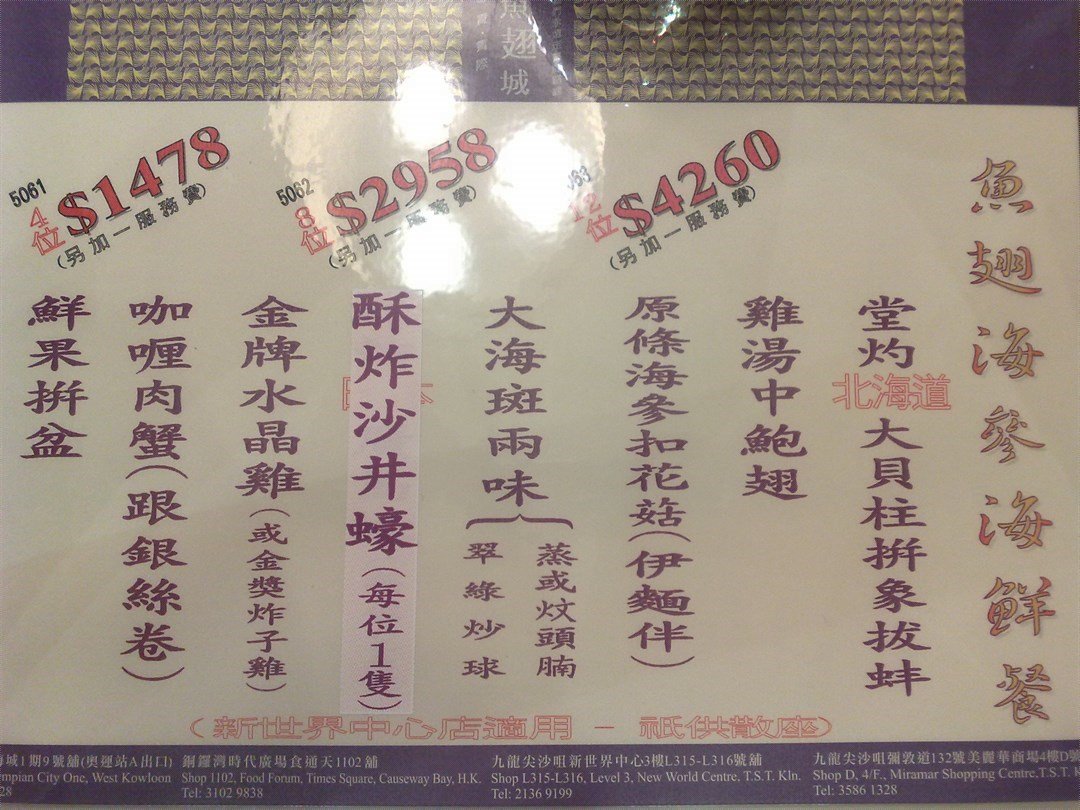 魚翅城
魚翅海參海鮮餐
5061
4位
$1478
(另加一服務費)
5062
8位
$2958
(另加一服務費)
63
12位
$4260
(另加一服務費)
堂灼北海道大貝柱拼象拔蚌
雞湯中鮑翅
原條海參扣花菇(伊麵伴)
大海斑兩味
蒸或炆頭腩
翠綠炒球
酥炸沙井蠔(每位1隻)
金牌水晶雞(或金獎炸子雞)
咖喱肉蟹(跟銀絲卷)
鮮果拼盆
(新世界中心店適用 - 祇供散座)
城1期9號舖(奧運站A出口)
mpian City One, West Kowloon
28
銅鑼灣時代廣場食通天1102舖
Shop 1102, Food Forum, Times Square, Causeway Bay, H.K.
Tel: 3102 9838
九龍尖沙咀新世界中心3樓L315-L316號舖
Shop L315-L316, Level 3, New World Centre, T.S.T. Kln.
Tel: 2136 9199
九龍尖沙咀彌敦道132號美麗華商場4樓D號
Shop D, 4/F., Miramar Shopping Centre,T.S.T.
Tel: 3586 1328